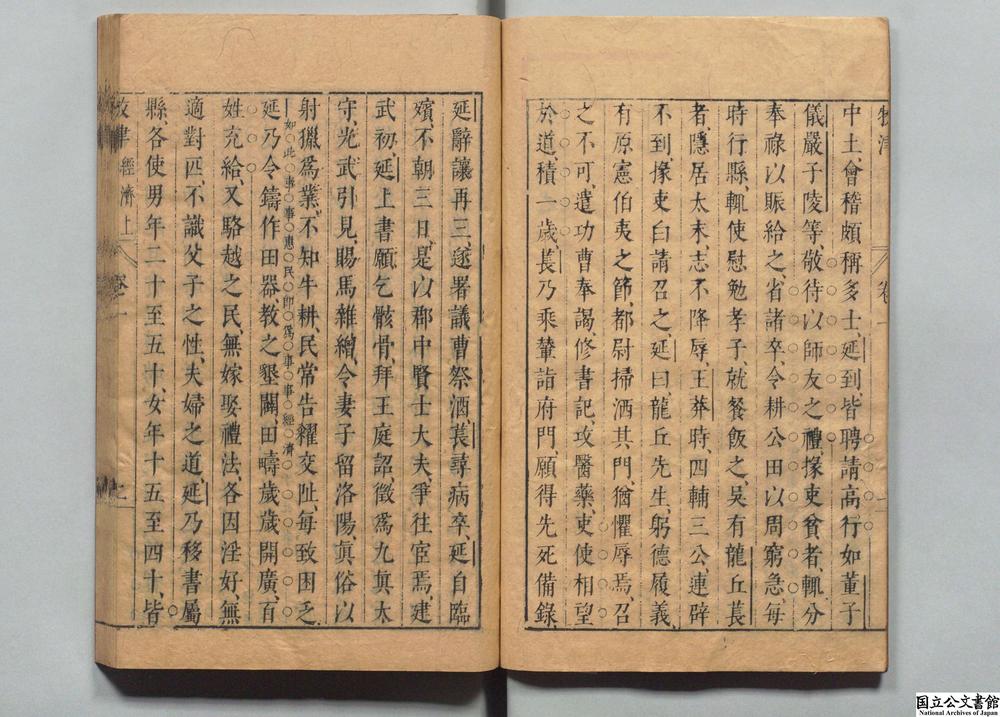 牧津
卷一
中土會稽頗稱多士、延到、皆聘請高行如董子
儀嚴子陵等、敬待以師友之禮、掾吏貧者、輒分
奉祿以賑給之、省諸卒、令耕公田、以周窮急、每
時行縣、輒使慰勉孝子、就餐飯之、吳有龍丘萇
者、隱居太末、志不降辱、王莽時、四輔三公、連辟
不到、掾吏白請召之、延曰龍丘先生、躬德履義、
有原憲伯夷之節、都尉掃洒其門、猶懼辱焉、召
之不可、遣功曹奉謁、修書記、攻醫藥、吏使相望
於道、積一歲、萇乃乘輦詣府門、願得先死備錄、
延辭讓再三、遂署議曹祭酒、萇尋病卒、延自臨
殯、不朝三日、是以郡中賢士大夫、爭往宦焉、建
武初、延上書願乞骸骨、拜王庭、詔徵為九真太
守、光武引見、賜馬雜繒、令妻子留洛陽、真俗以
射獵為業、不知牛耕、民常告糴交阯、每致困乏、
如此事事惠民即為事事經濟
延乃令鑄作田器、教之墾闢、田疇歲歲開廣、百
姓充給、又駱越之民、無嫁娶禮法、各因淫好、無
適對匹、不識父子之性、夫婦之道、延乃移書屬
縣、各使男年二十至五十、女年十五至四十、皆
牧津 經濟上 卷一